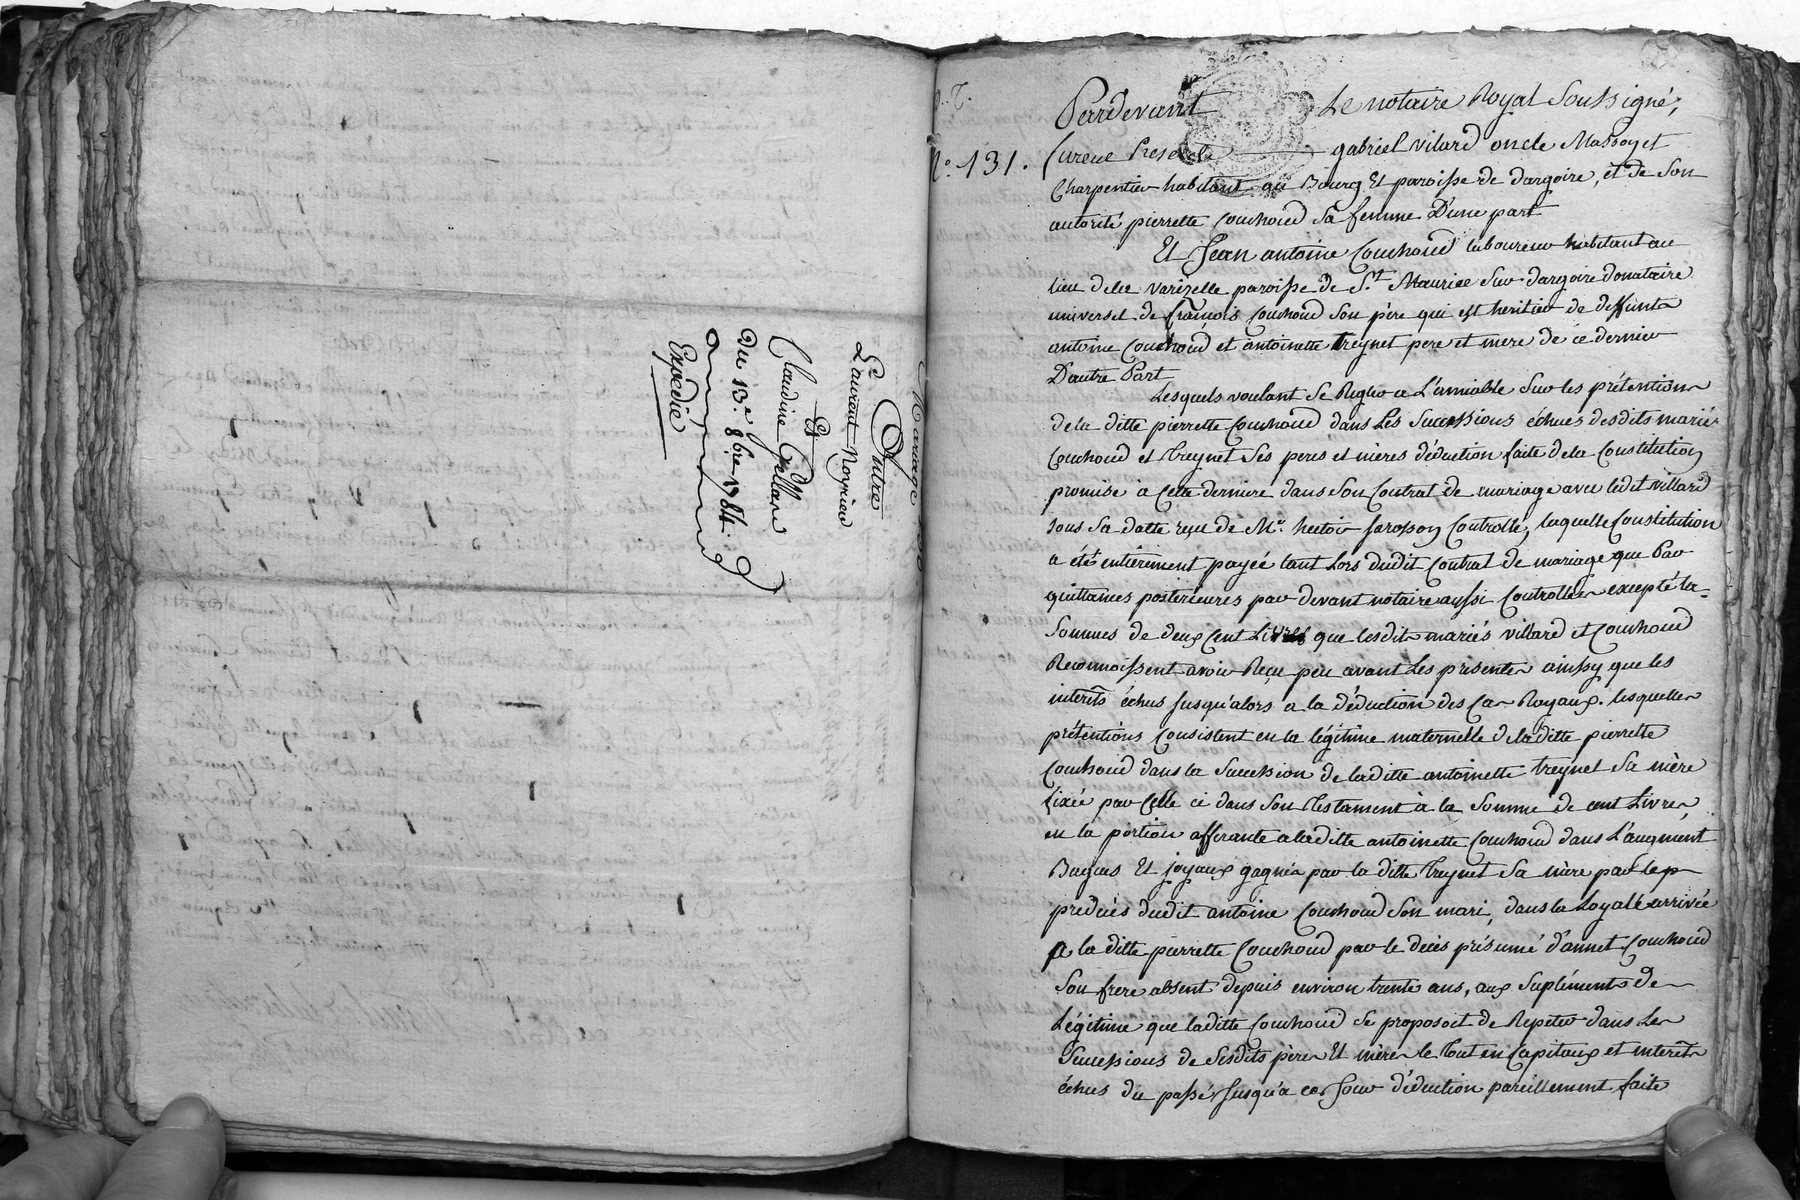 Mariage
Entre
Laurent Noyriew
Et
Claudine Gellan
du 13.e 8bre 1784.
Expedié
N.o 131.
Pardevant Le notaire Royal Soussigné,
furent Presents gabriel vilard oncle Masson et
Charpentier habitant au Bourg Et paroisse de dargoire, et de Son
autorité pierrette Couchoud Sa femme D'une part
Et Jean antoine Couchoud laboureur habitant au
lieu dela varizelle paroisse de S.t Maurice Sur dargoire donataire
universel de francois Couchoud Son père qui est heritier de deffunts
antoine Couchoud et antoinette treynet pere et mere de ce dernier
D'autre Part
Lesquels voulant Se Regler a L'amiable Sur les prétentions
de la ditte pierrette Couchoud dans Les Successions échues desdits mariés
Couchoud et treynet Ses peres et mères déduction faite dela Constitution
promise à Cette derniere dans Son Contrat de mariage avec ledit villard
sous Sa datte reçu de M.e hector Controllé, laquelle Constitution
a été entièrement payée tant Lors dudit Contrat de mariage que Par
quittances posterieures par devant notaire aussi Controllées excepté la
Sommes de deux Cent Livres que lesdits mariés villard et Couchoud
Reconnoissent avoir Reçu peu avant Les presentes ainsy que les
interets échus jusqu'alors a la déduction des Cas Royaux. lesquelles
prétentions Consistent en la légitime maternelle de laditte pierrette
Couchoud dans la Succession de laditte antoinette treynet Sa mère
fixée par Celle ci dans Son testament à la Somme de cent Livres
en la portion afferante a laditte antoinette Couchoud dans L'augment
Bagues Et joyaux gagnés par la ditte treynet Sa mère par le p
predeces dudit antoine Couchoud Son mari, dans la Loyale arrivée
a la ditte pierrette Couchoud par le décès présumé d'annet Couchoud
Son frere absent depuis environ trente ans, aux Supléments de
Légitime que laditte Couchoud Se proposoit de Repeter dans Les
Successions de Sesdits pères Et mères le tout en Capitaux et interets
échus du passé jusqu'a ce Jour déduction pareillement faite